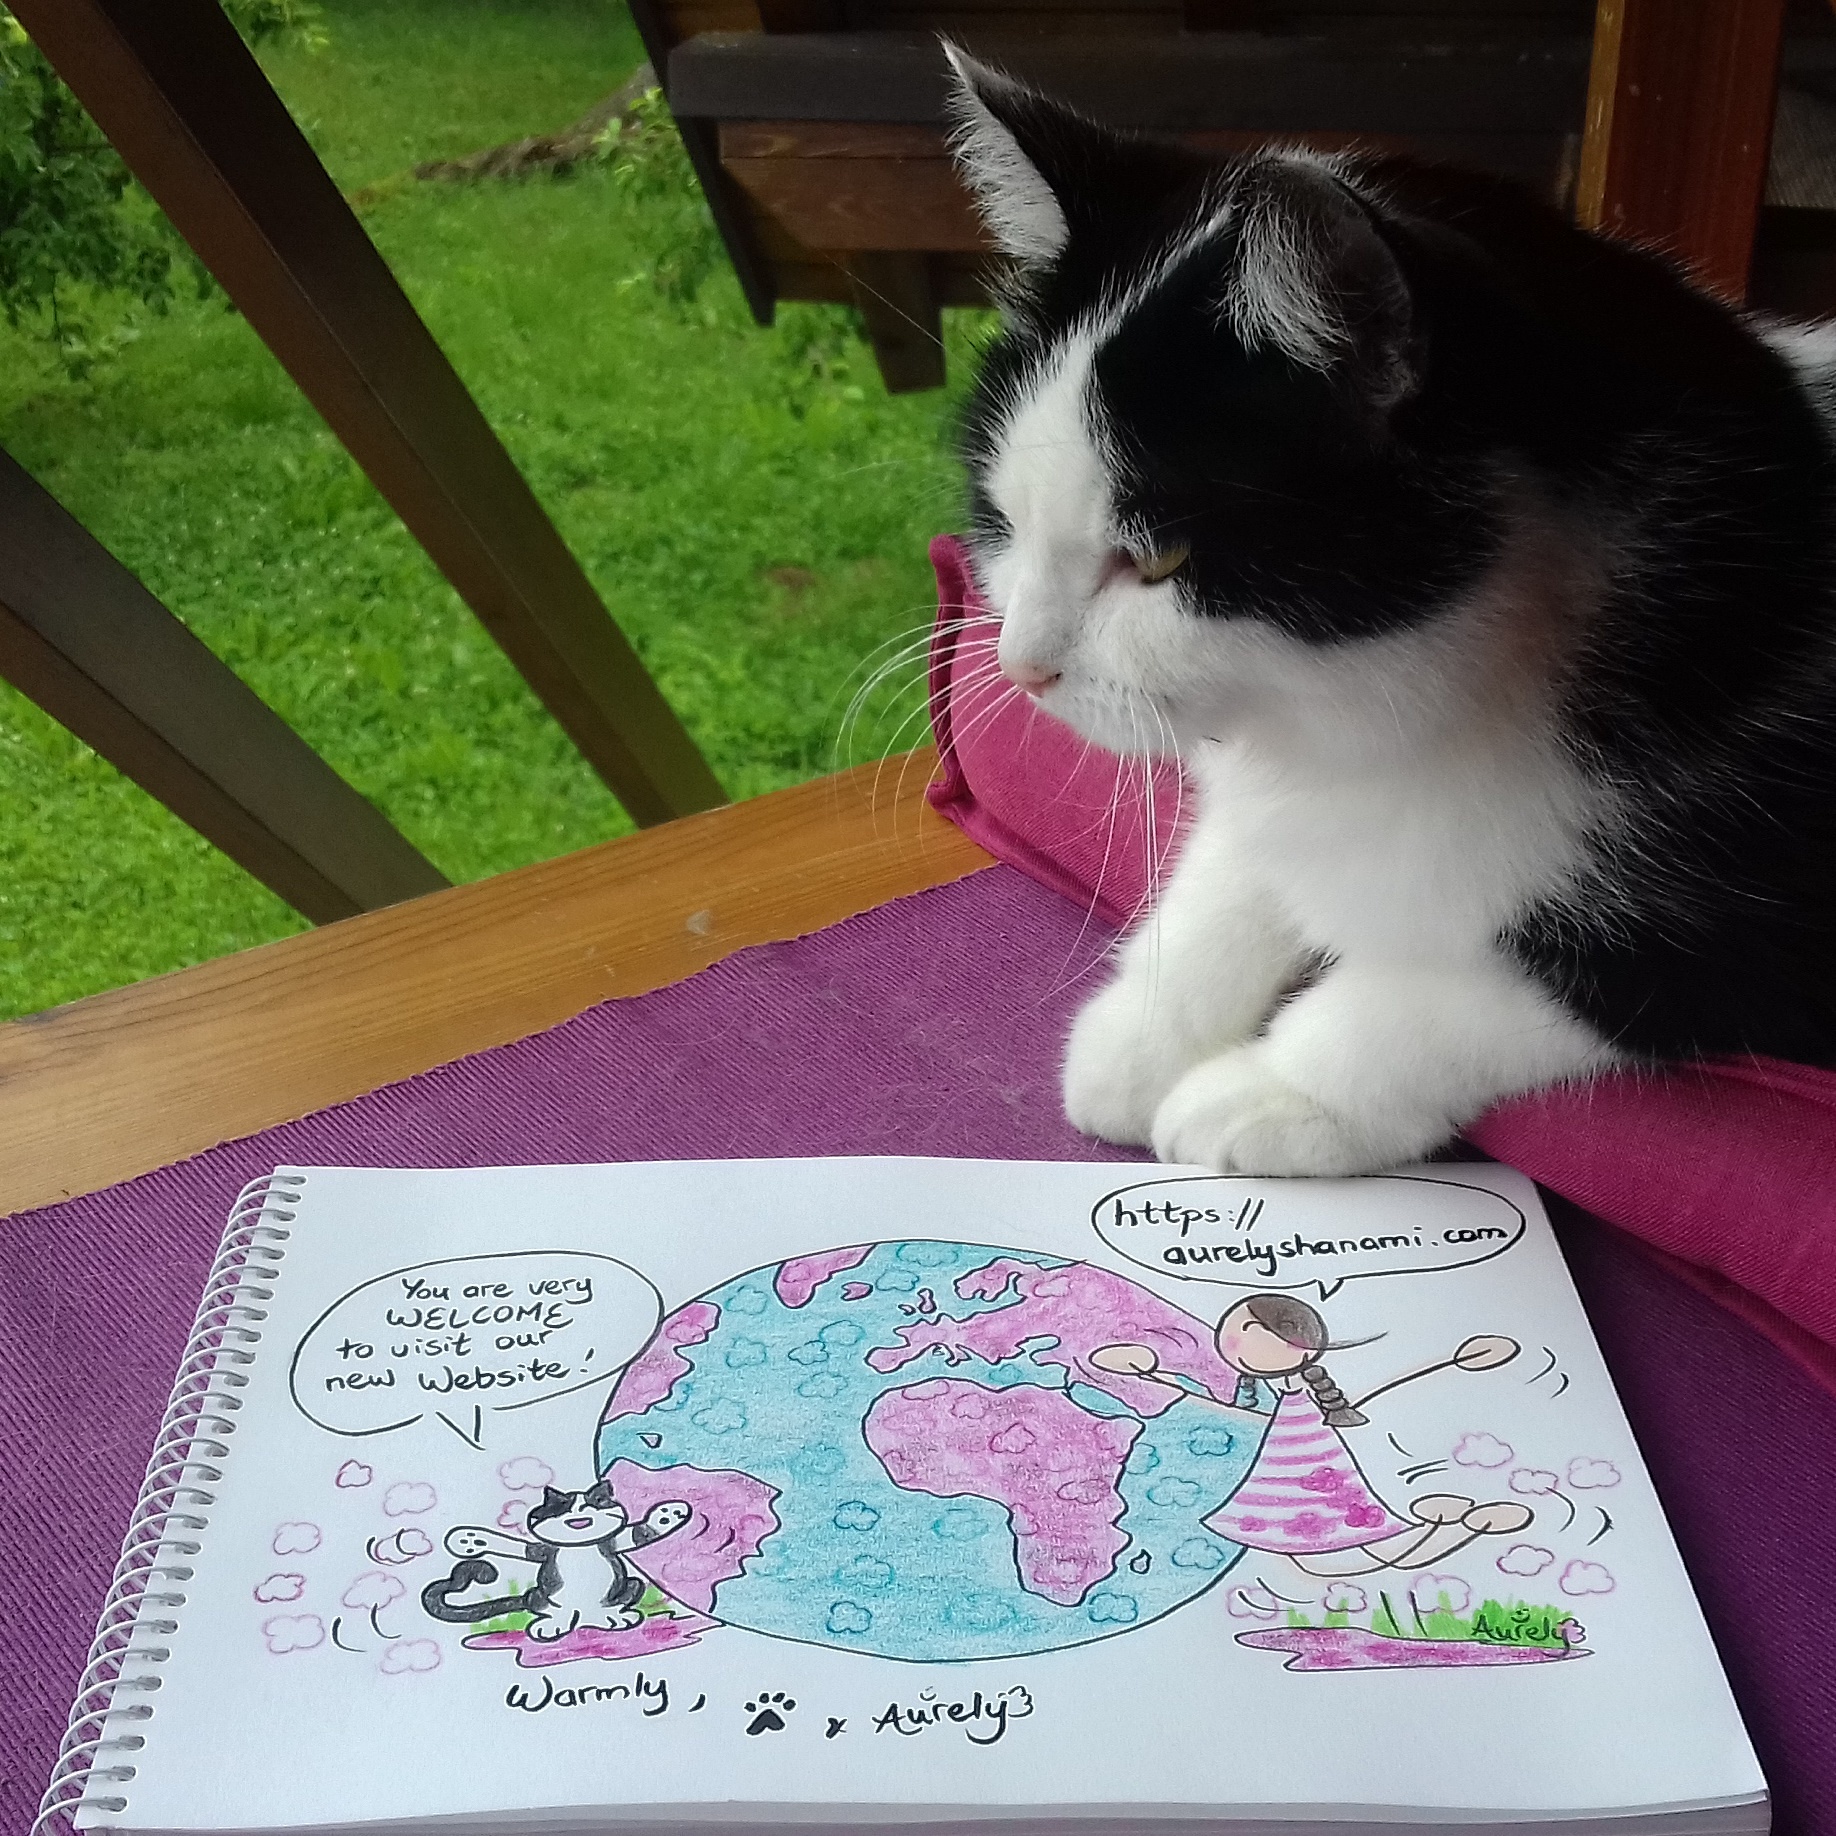 https://
aurelyshanami.com
You are very
WELCOME
to visit our
new Website!
Aurely
Warmly, x Aurely